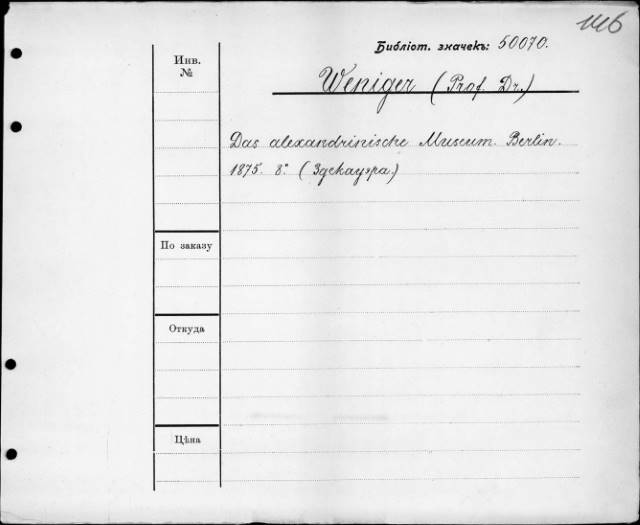 Библіот. значекъ: 50070.
Инв.
№
Weniger (Prof. Dr.)
Das alexandrinische Museum. Berlin.
1875. 8.° (Здекауэра.)
По заказу
Откуда
Цѣна